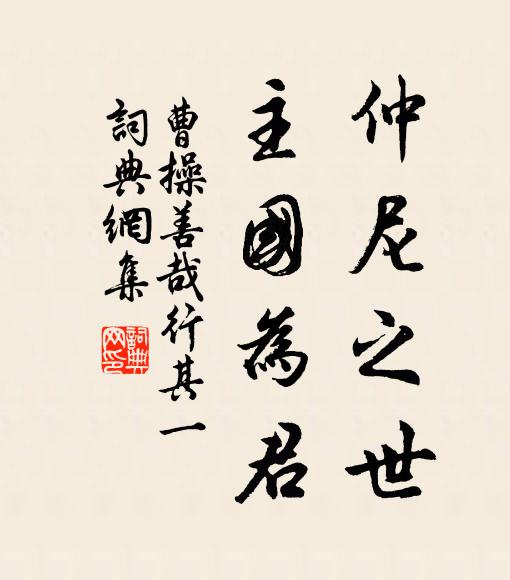 仲尼之世
主國為君
曹操善哉行其一
詞典網集
詞典網印